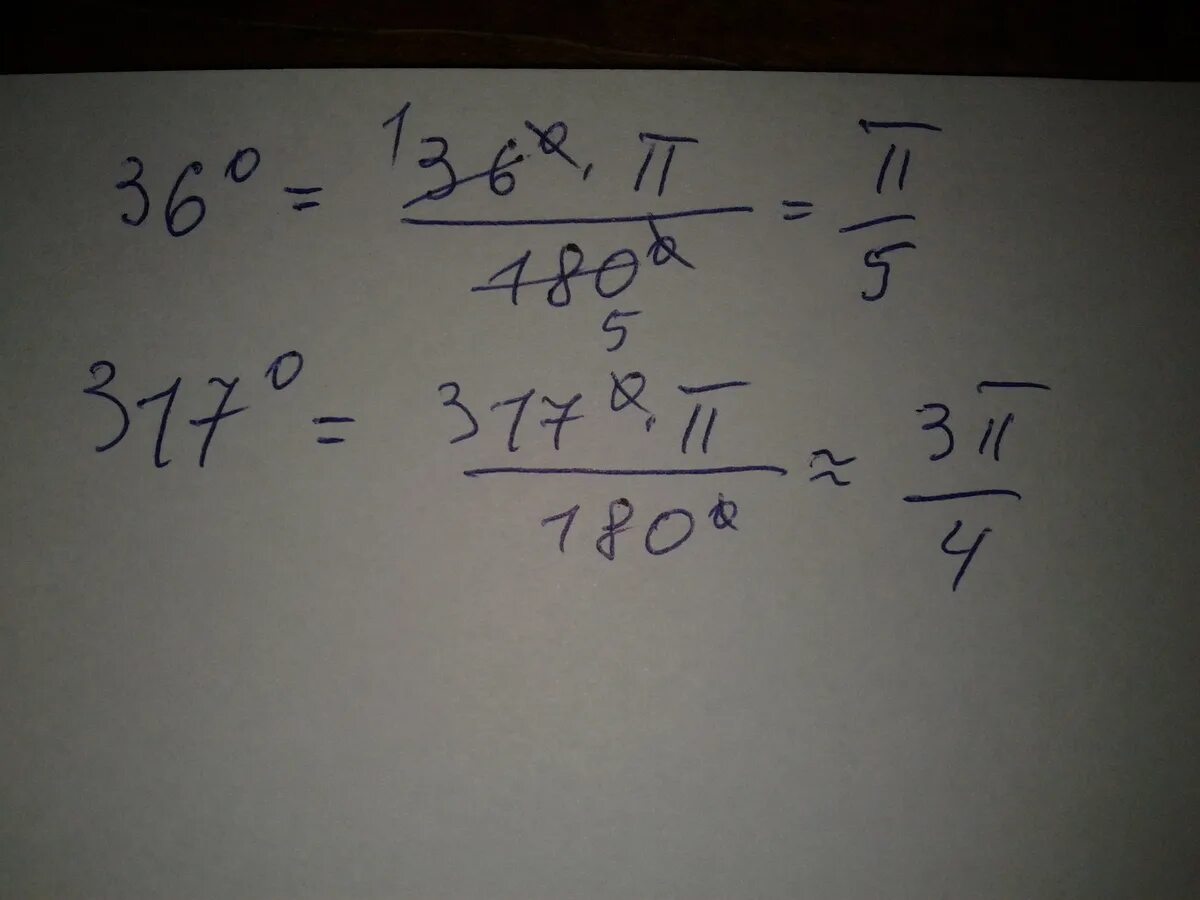 36° = 36° · π / 180° = π / 5
1
5
317° = 317° · π / 180° ≈ 3π / 4